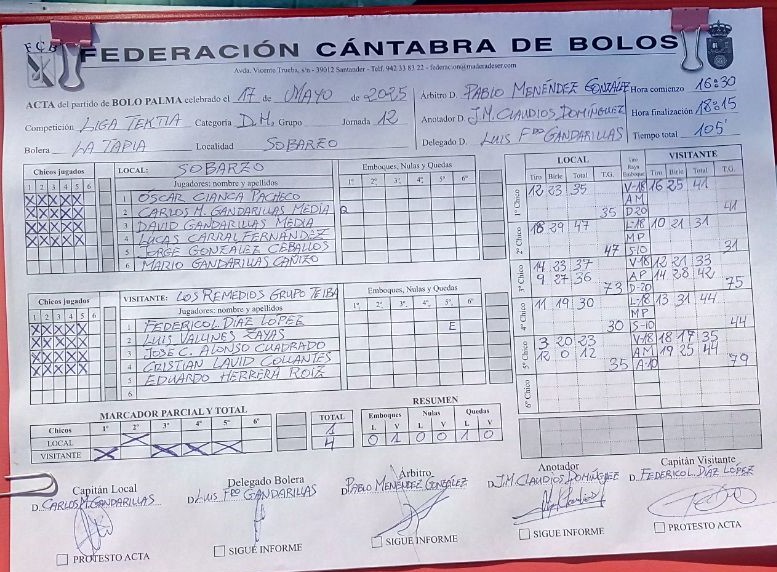 FCB
FEDERACIÓN CÁNTABRA DE BOLOS
Avda. Vicente Trueba, s/n - 39012 Santander - Telf. 942 33 83 22 - federacion@maderadeser.com
ACTA del partido de BOLO PALMA celebrado el 17 de MAYO de 2025
Árbitro D. PABLO MENÉNDEZ GONZÁLEZ Hora comienzo 16:30
Competición LIGA TEKTIA Categoría D.H. Grupo Jornada 12
Anotador D. J.M. CLAUDIOS DOMÍNGUEZ Hora finalización 18:15
Bolera LA TAPIA Localidad SOBARZO
Delegado D. LUIS Fdo GANDARILLAS Tiempo total 105'
Chicos jugados
1 2 3 4 5 6
LOCAL: SOBARZO
Jugadores: nombre y apellidos
Emboques, Nulas y Quedas
1º 2º 3º 4º 5º 6º
1 OSCAR CIANCA PACHECO
2 CARLOS M. GANDARILLAS MEDIA Q
3 DAVID GANDARILLAS MEDIA
4 LUCAS CARRAL FERNÁNDEZ
5 JORGE GONZALEZ CEBALLOS
6 MARIO GANDARILLAS CAÑIZO
Chicos jugados
1 2 3 4 5 6
VISITANTE: LOS REMEDIOS GRUPO TEIBA
Jugadores: nombre y apellidos
Emboques, Nulas y Quedas
1º 2º 3º 4º 5º 6º
1 FEDERICO L. DIAZ LOPEZ E
2 LUIS VALLINES ZAYAS
3 JOSE C. ALONSO CUADRADO
4 CRISTIAN DAVID COLLANTES
5 EDUARDO HERRERA ROIZ
6
LOCAL VISITANTE
Tiro Birle Total T.G. Tiro Raya Emboque Tiro Birle Total T.G.
1º Chico 12 23 35 V-18 16 25 41
AM
35 D-20 41
2º Chico 18 29 47 L-18 10 21 31
MP
47 S-10 31
3º Chico 14 23 37 V-18 12 21 33
9 27 36 AP 14 28 42
73 D-20 75
4º Chico 11 19 30 L-18 13 31 44
MP
30 S-10 44
5º Chico 3 20 23 V-18 18 17 35
12 0 12 AM 19 25 44
35 A-10 79
6º Chico
MARCADOR PARCIAL Y TOTAL
Chicos 1º 2º 3º 4º 5º 6º TOTAL
LOCAL X 1
VISITANTE X X X X 4
RESUMEN
Emboques Nulas Quedas
L V L V L V
0 1 0 0 1 0
Capitán Local
D. CARLOS M. GANDARILLAS
PROTESTO ACTA
Delegado Bolera
D. LUIS Fdo GANDARILLAS
SIGUE INFORME
Árbitro
D. PABLO MENÉNDEZ GONZÁLEZ
SIGUE INFORME
Anotador
D. J.M. CLAUDIOS DOMÍNGUEZ
SIGUE INFORME
Capitán Visitante
D. FEDERICO L. DÍAZ LOPEZ
PROTESTO ACTA